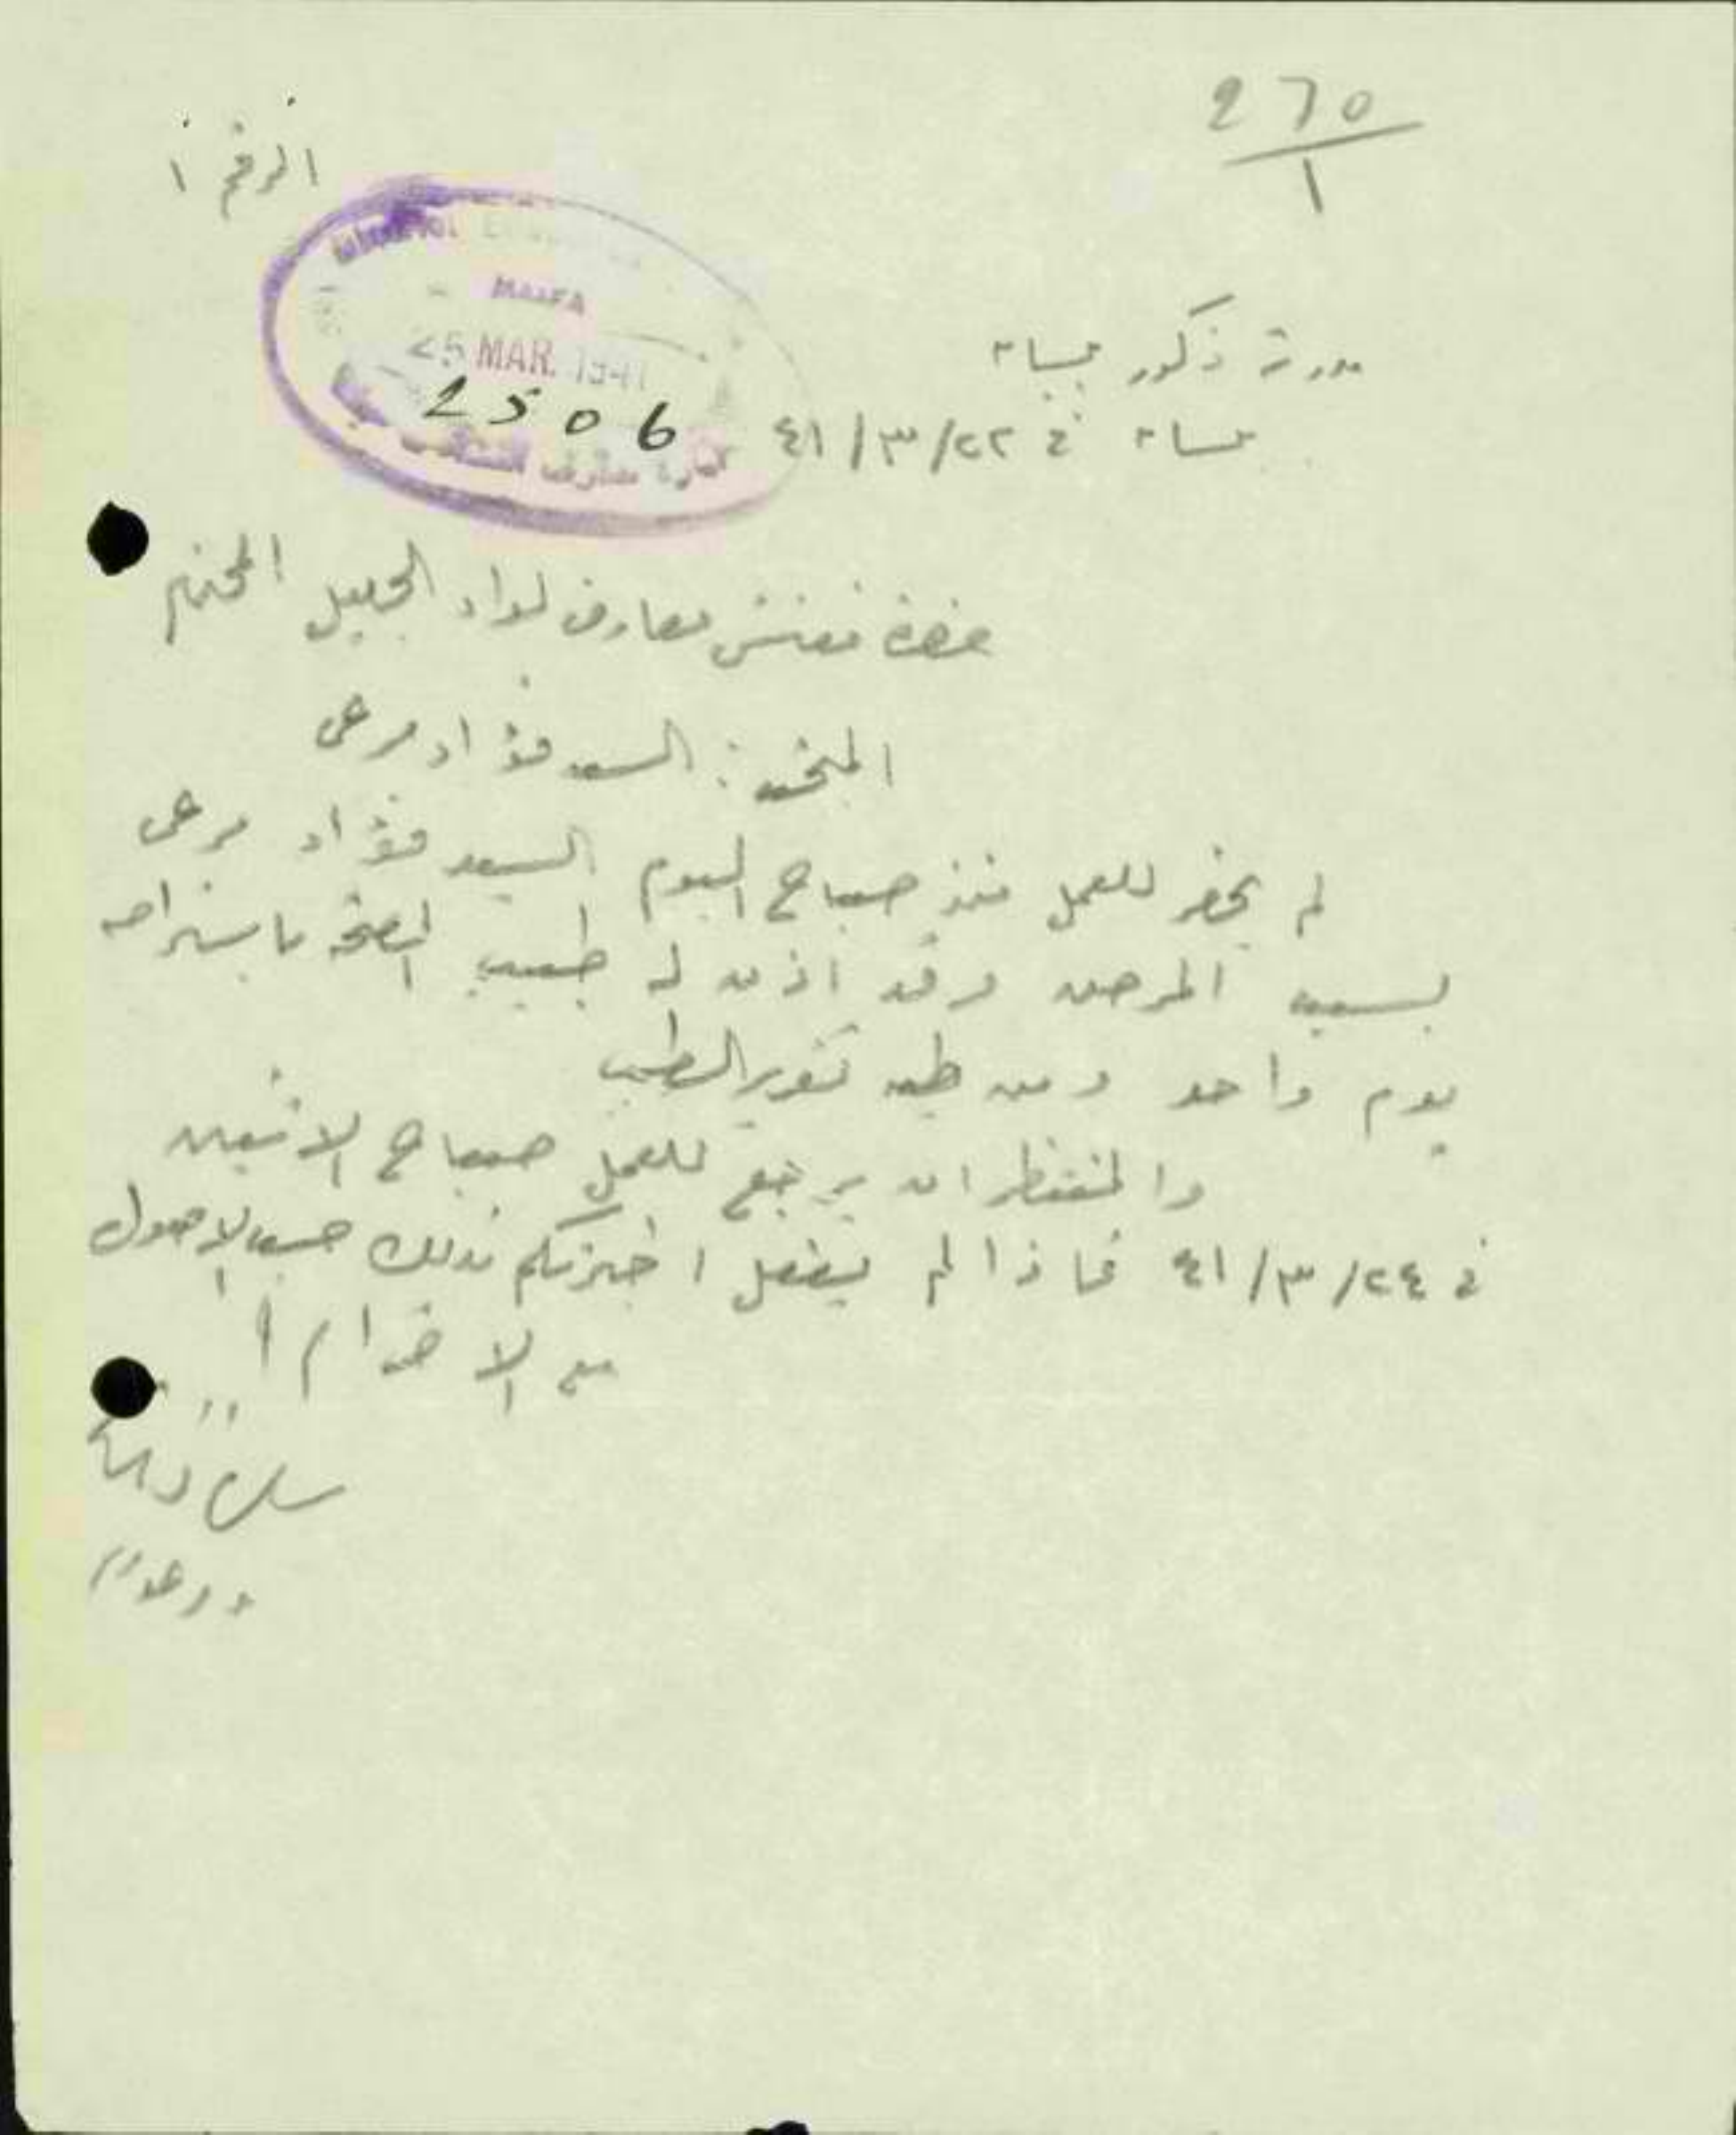 270
1
الرقم ١
HAIFA
25 MAR. 1941
2506
مدرسة ذكور بيسان
بيسان في ٢٢/٣/٤١
حضرة مفتش معارف لواء الجليل المحترم
السيد فؤاد مرعي
لم يحضر للعمل منذ صباح اليوم السيد فؤاد مرعي
بسبب المرض وقد اذن له طبيب الصحة باستراحة
يوم واحد ومن طيه تقرير الطبيب
والمنتظر ان يرجع للعمل صباح الاثنين
في ٢٤/٣/٤١ فاذا لم يفعل اخبرتكم بذلك حسب الاصول
مع الاحترام